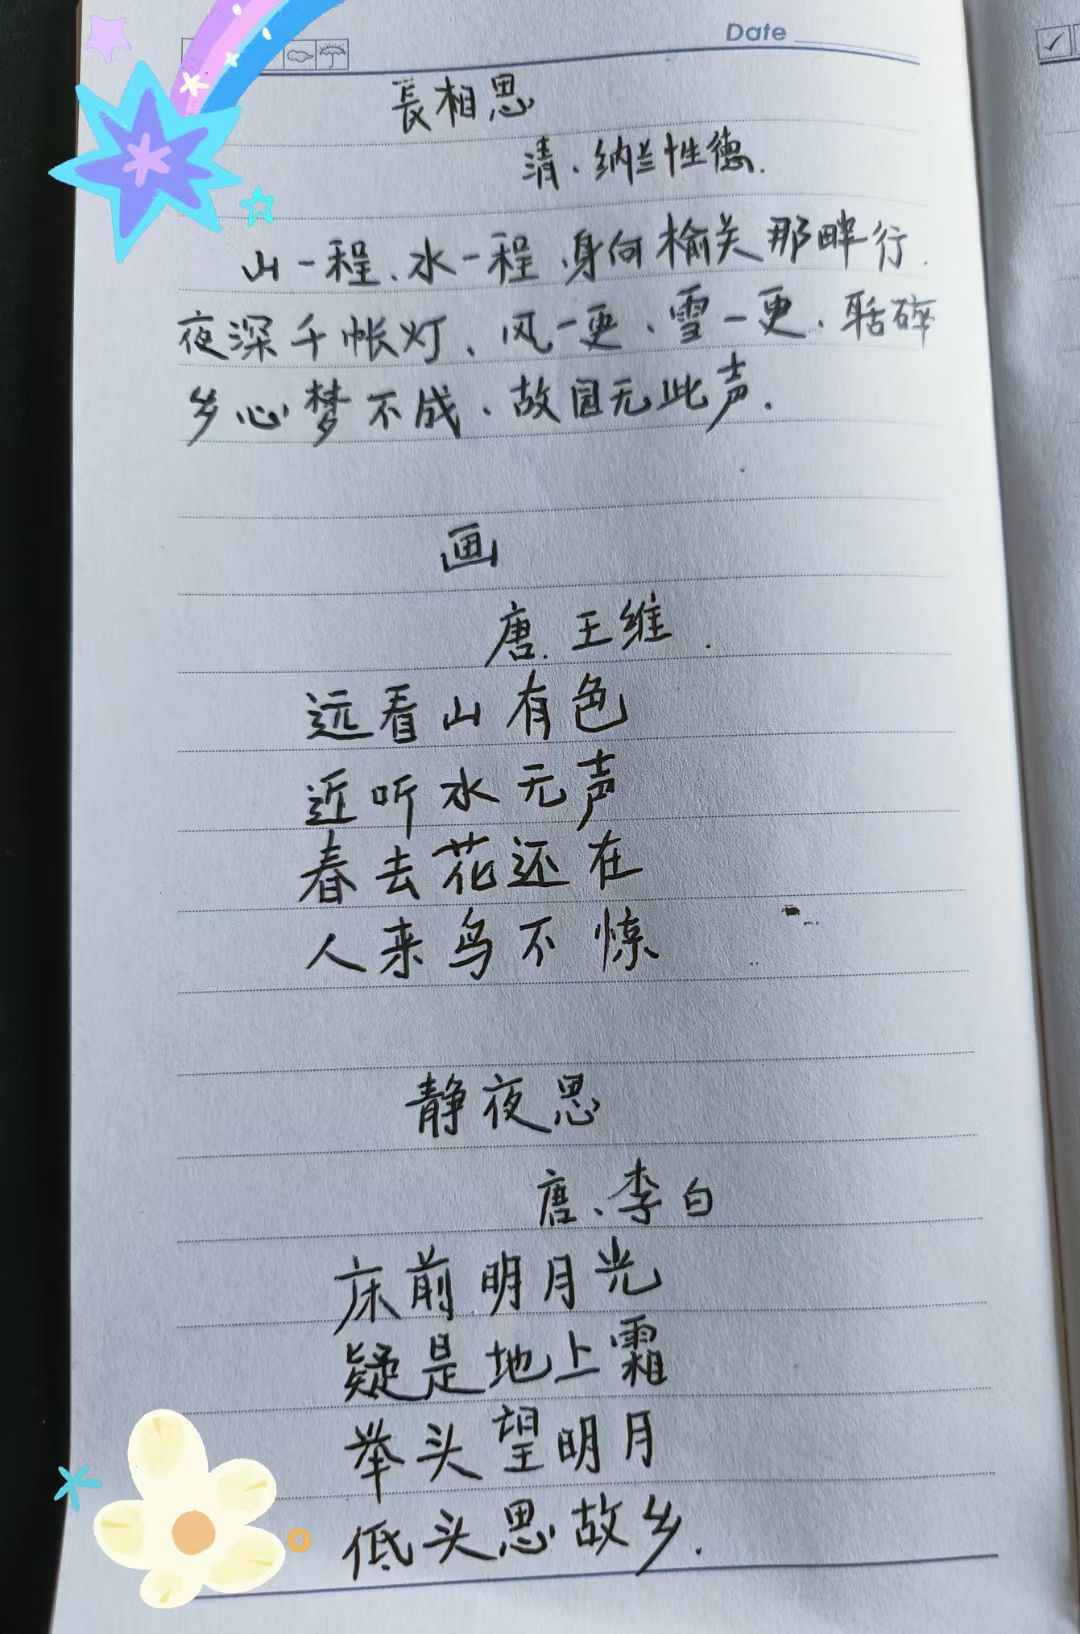 Date
長相思
清·纳兰性德.
山一程、水一程、身向榆关那畔行.
夜深千帐灯、风一更、雪一更、聒碎
乡心梦不成、故园无此声.
画
唐.王维.
远看山有色
近听水无声
春去花还在
人来鸟不惊
静夜思
唐、李白
床前明月光
疑是地上霜
举头望明月
低头思故乡.